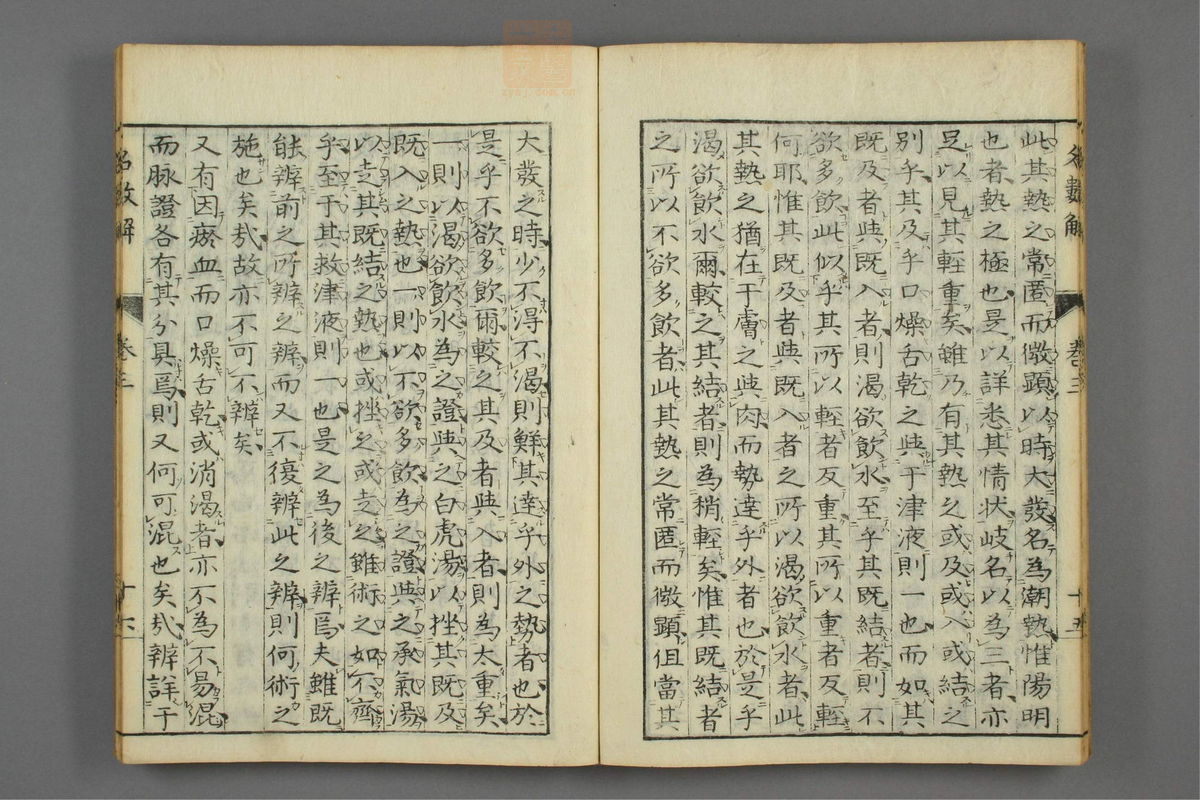 此其熱之常匿而微顕以時大發名為潮熱惟陽明
也者熱之極也是以詳悉其情状岐名以為三者亦
足以見其輕重矣雖乃有其熱之或及或入或結之
別乎其及乎口燥舌乾之與于津液則一也而如其
既及者與既入者則渴欲飲水至乎其既結者則不
欲多飲此似乎其所以輕者反重其所以重者反輕
何耶惟其既及者與既入者之所以渴欲飲水者此
其熱之猶在于膚之與肉而勢達乎外者也於是乎
渴欲飲水爾較之其結者則為稍輕矣惟其既結者
之所以不欲多飲者此其熱之常匿而微顕但當其
大發之時少不得不渴則鮮其達乎外之勢者也於
是乎不欲多飲爾較之其及者與入者則為太重矣
一則以渴欲飲水為之證與之白虎湯以挫其既及
既入之熱也一則以不欲多飲為之證與之承氣湯
以走其既結之熱也或挫之或走之雖術之如不齊
乎至于其救津液則一也是之為後之辨焉夫雖既
能辨前之所辨之辨而又不復辨此之辨則何術之
施也矣哉故亦不可不辨矣
又有因瘀血而口燥舌乾或消渴者亦不為不易混
而脉證各有其分具焉則又何可混也矣哉辨詳于
名數解
卷三
十五
名數解
卷三
十六